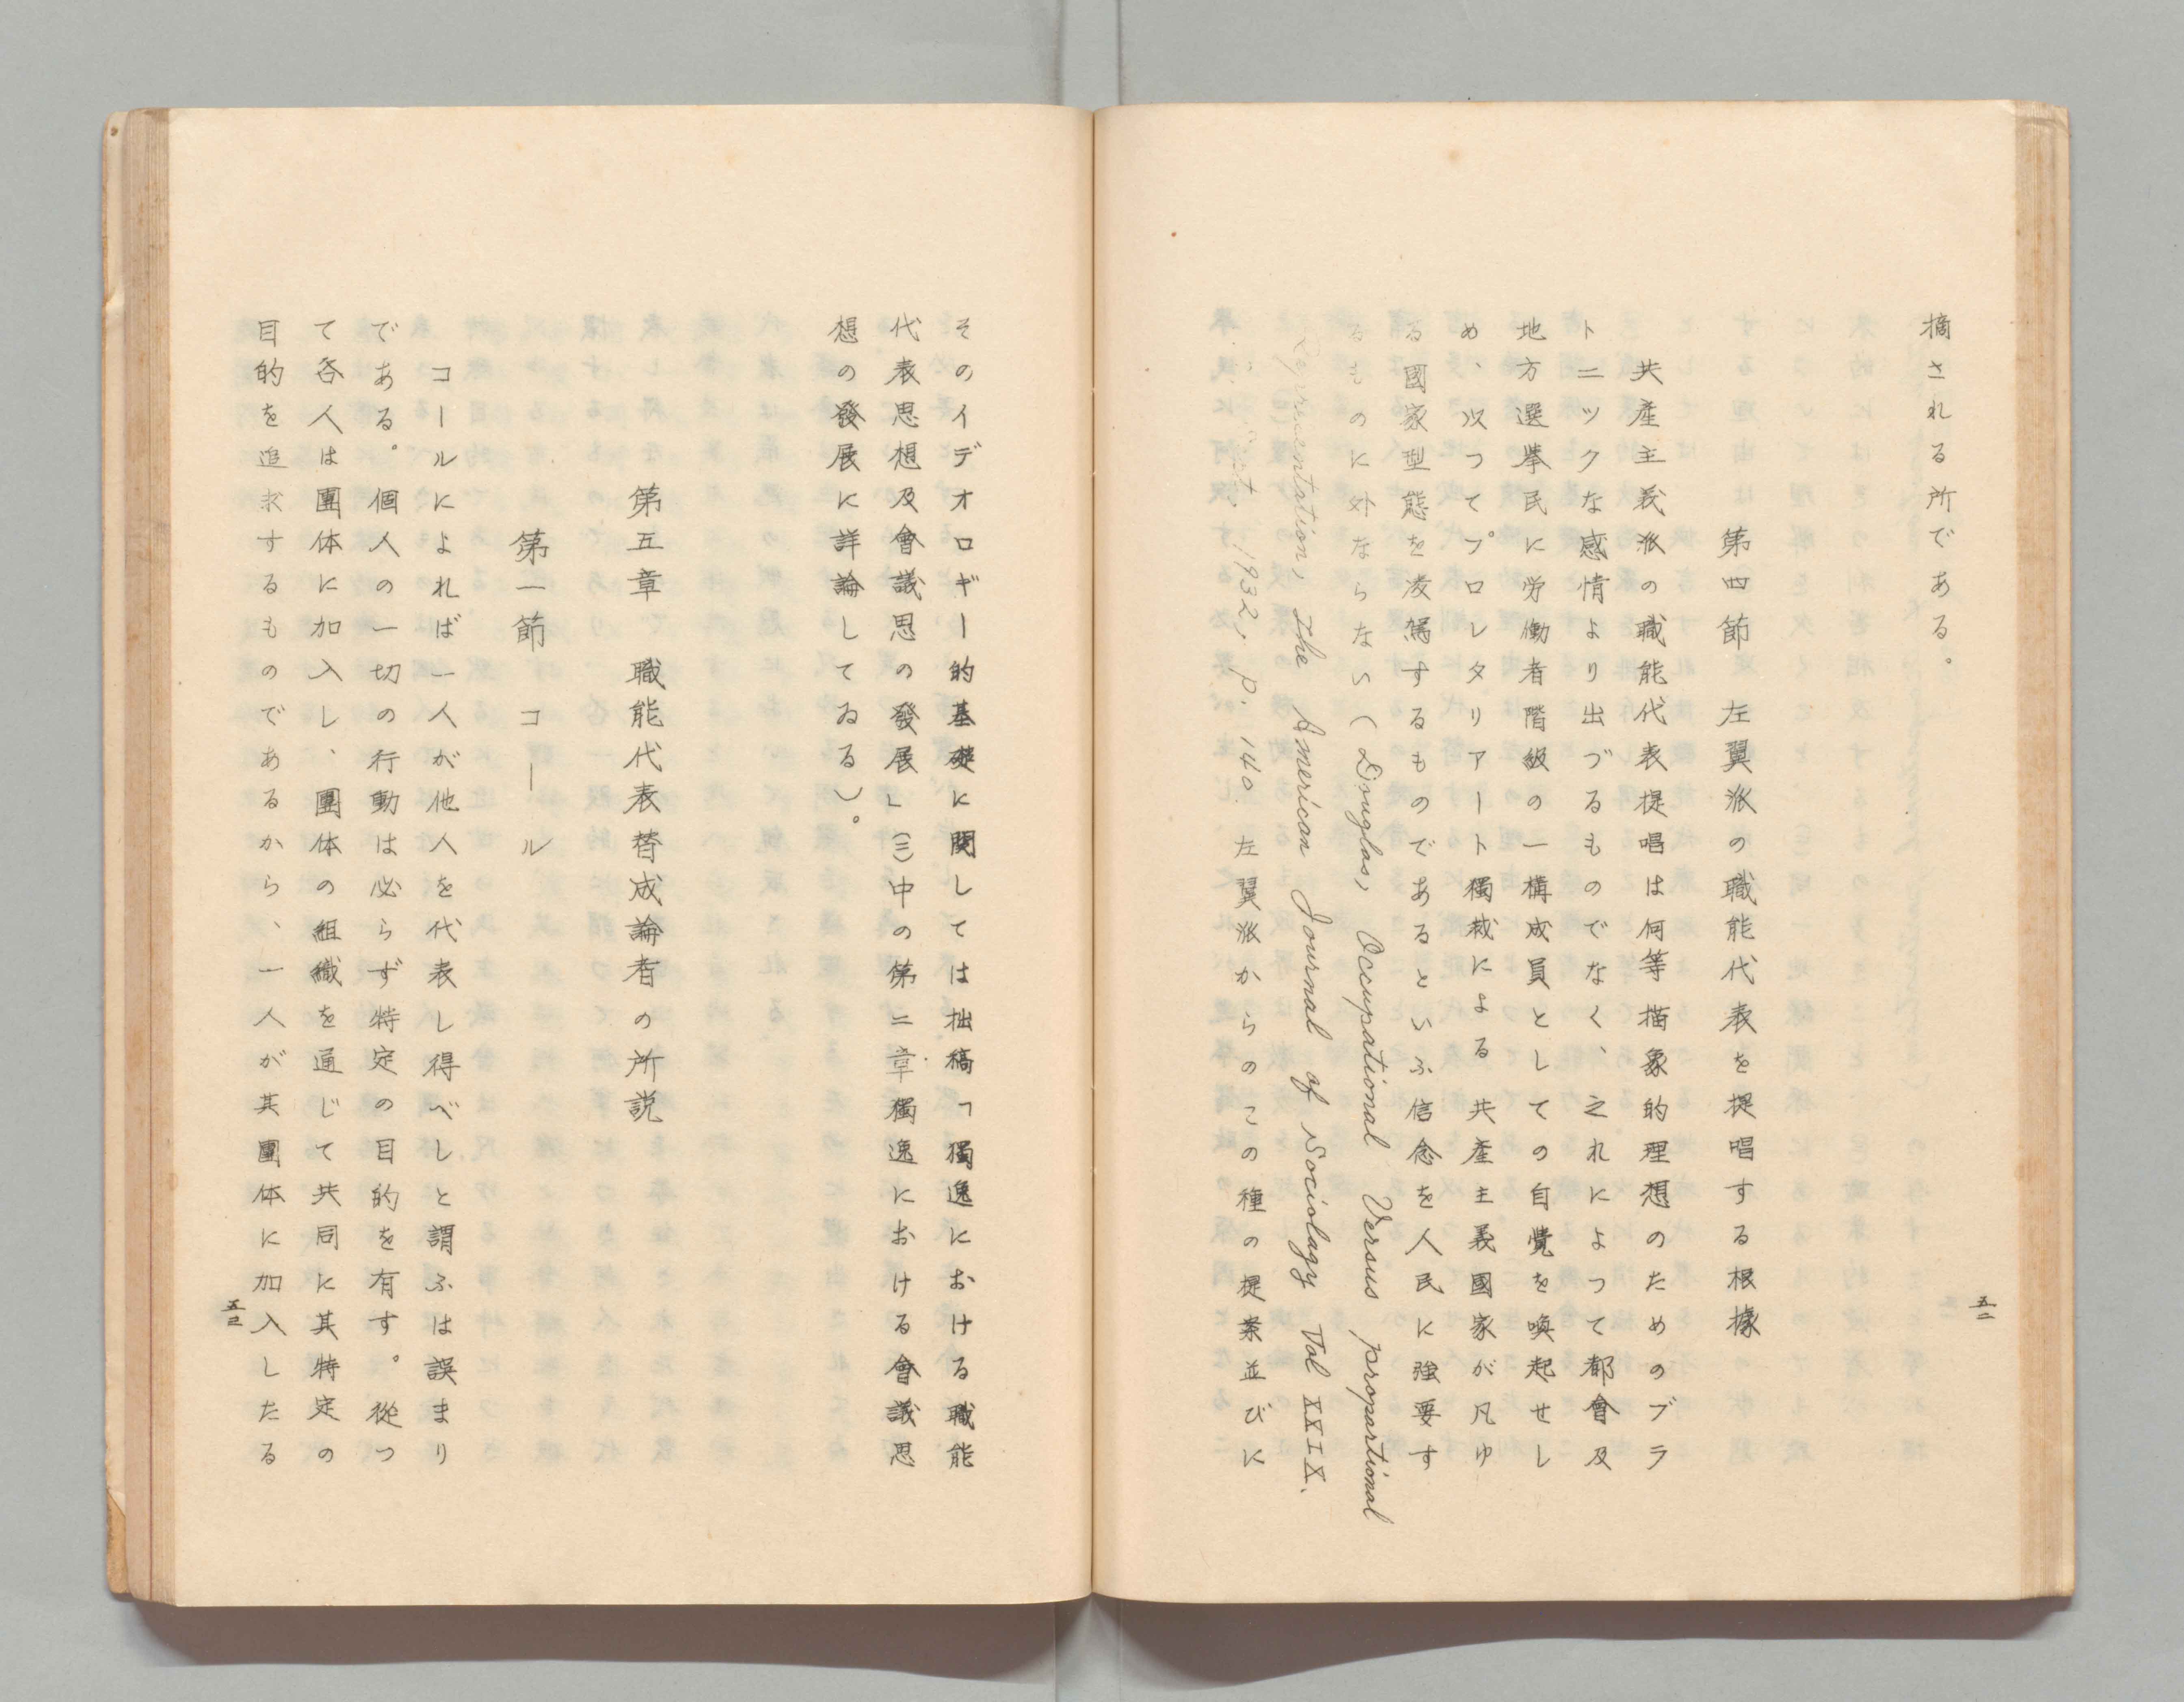 摘される所である。
第四節　左翼派の職能代表を提唱する根據
共産主義派の職能代表提唱は何等描象的理想のためのプラ
トニツクな感情より出づるものでなく、之れによつて都會及
地方選挙民に労働者階級の一構成員としての自覺を喚起せし
め、以つてプロレタリアート獨裁による共産主義國家が凡ゆ
る國家型態を凌駕するものであるといふ信念を人民に強要す
るものに外ならない（Douglas, Occupational Versus propartional
Representation, The American Journal of Sociology Vol XXIX.
1932, P. 140. 左翼派からのこの種の提案並びに
五二
そのイデオロギー的基礎に関しては拙稿「獨逸における職能
代表思想及會議思の發展」(三)中の第二章獨逸における會議思
想の發展に詳論してゐる）。
第五章　職能代表替成論者の所説
第一節　コール
コールによれば一人が他人を代表し得べしと謂ふは誤まり
である。個人の一切の行動は必らず特定の目的を有す。從つ
て各人は團体に加入し、團体の組織を通じて共同に其特定の
目的を追求するものであるから、一人が其團体に加入したる
五三